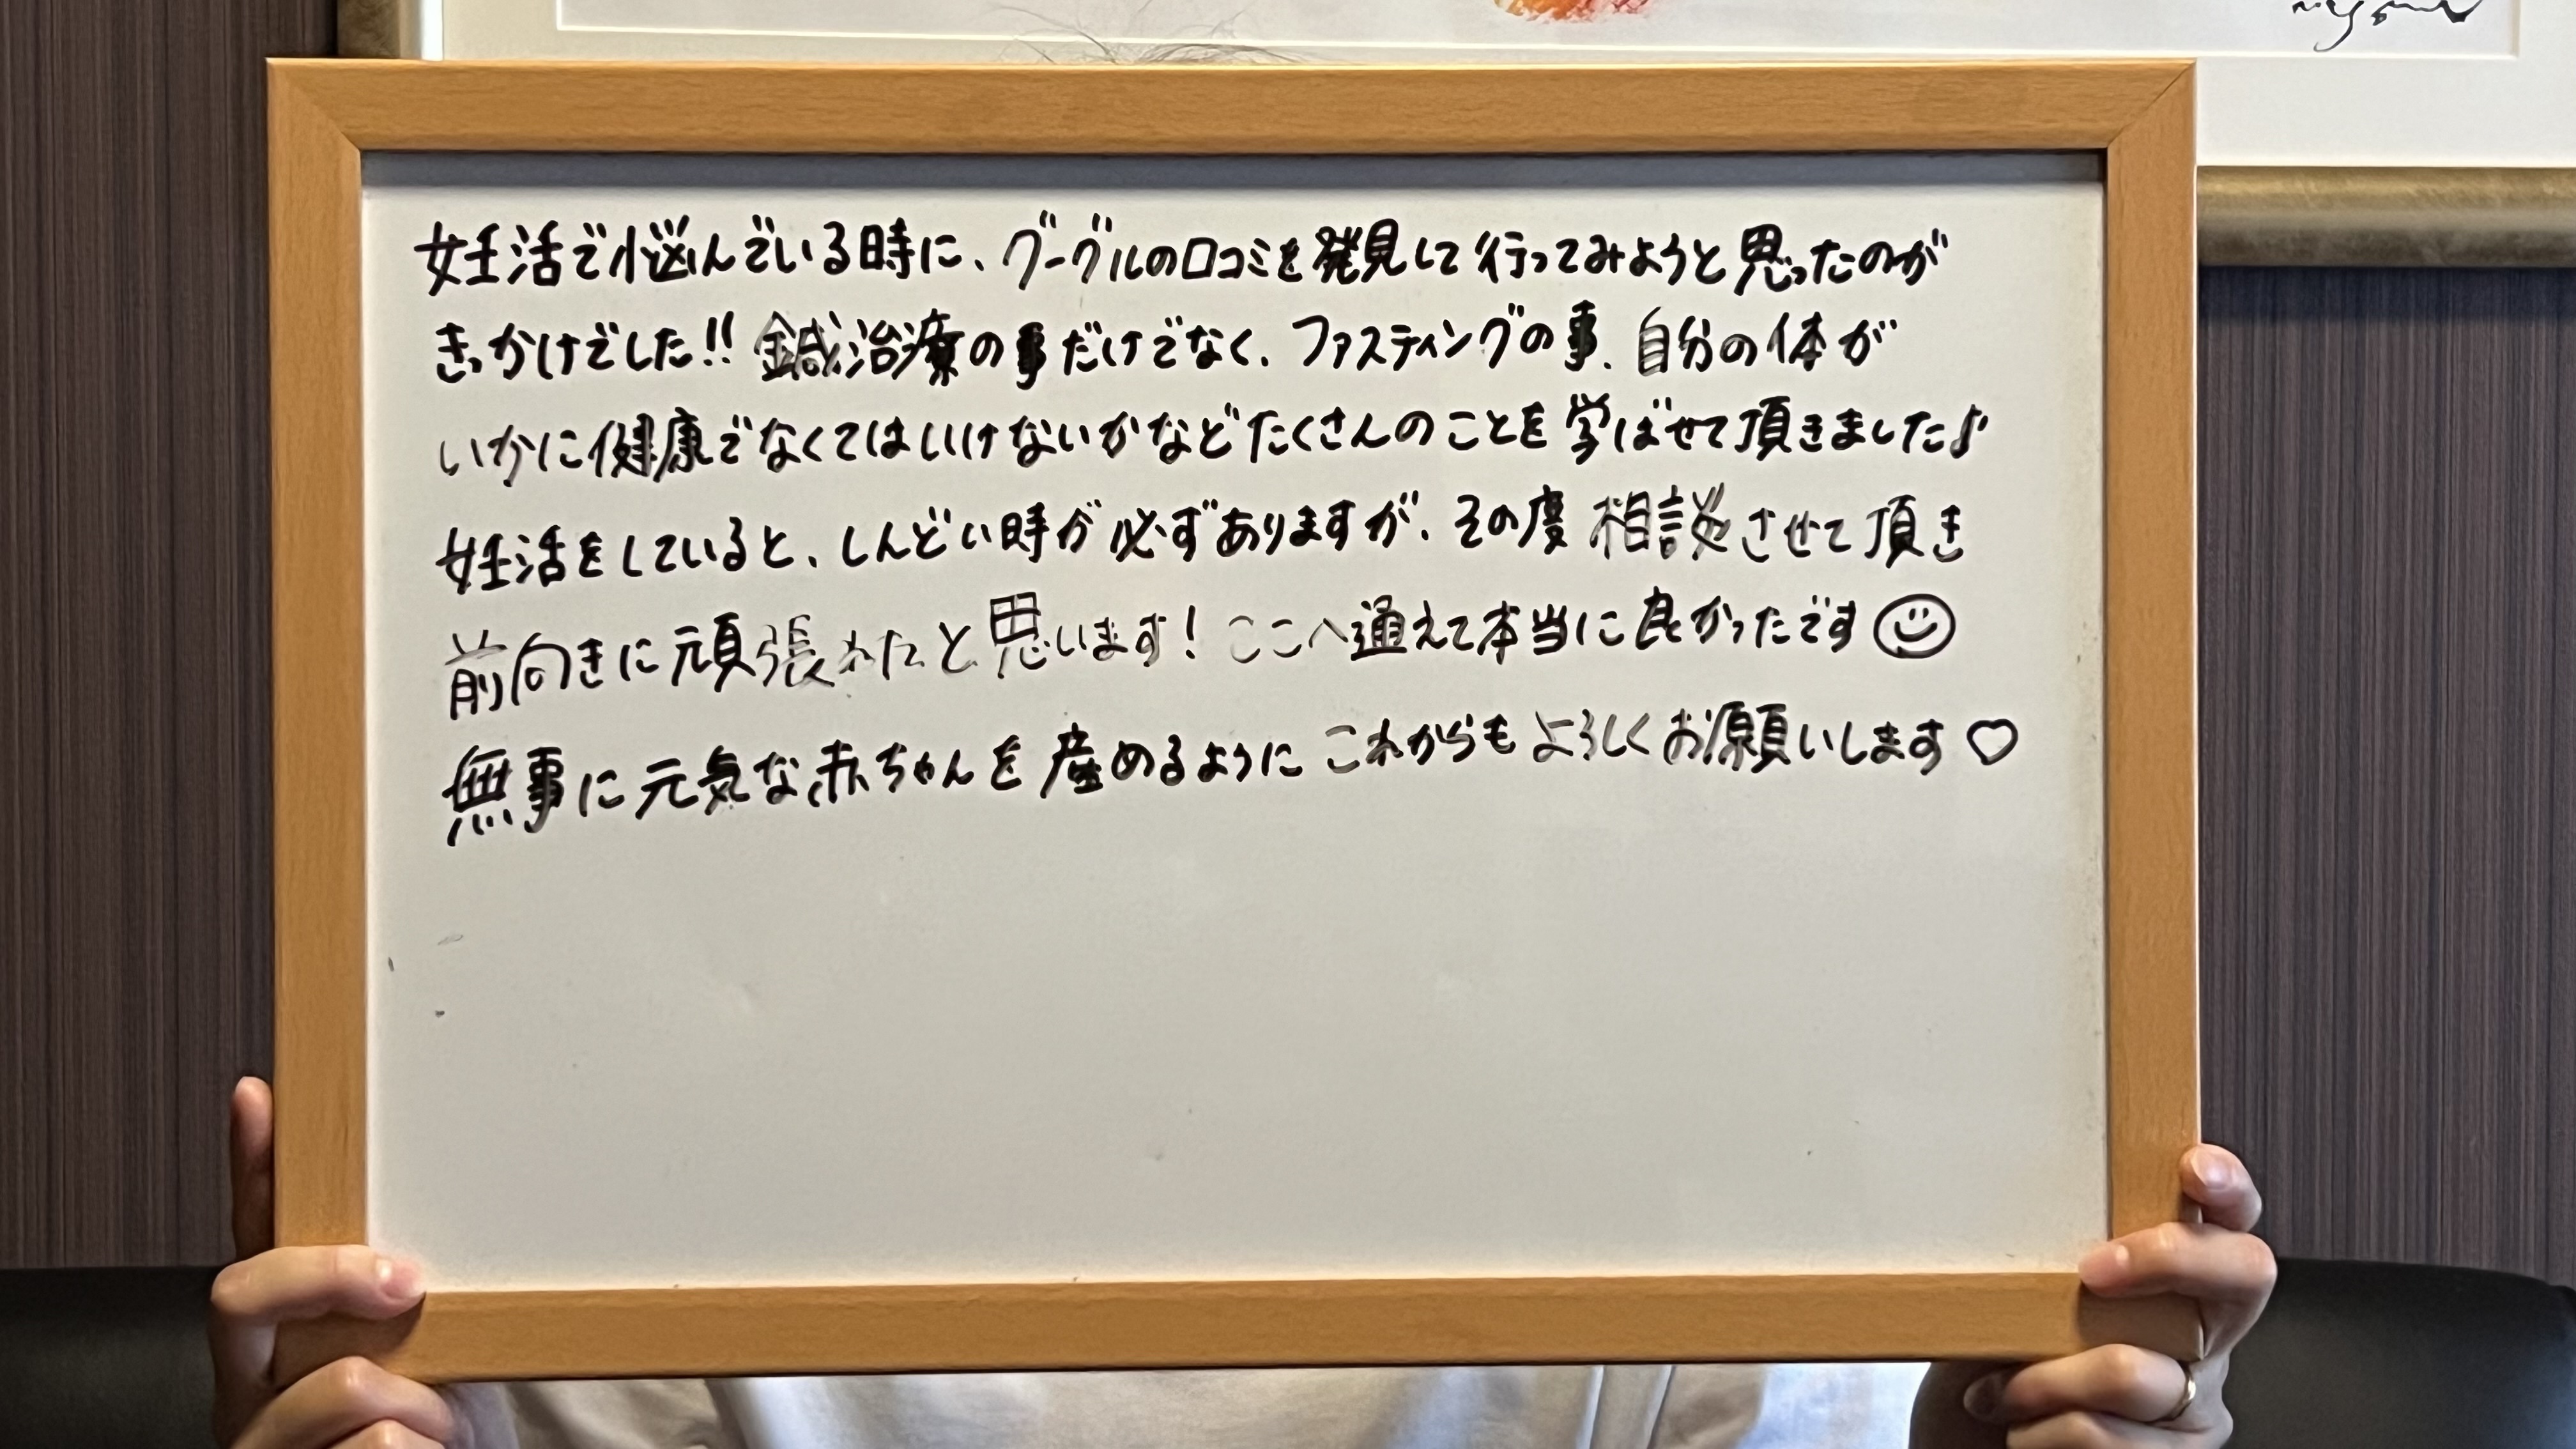 妊活で悩んでいる時に、グーグルの口コミを発見して行ってみようと思ったのが
きっかけでした!! 鍼治療の事だけでなく、ファスティングの事、自分の体が
いかに健康でなくてはいけないかなどたくさんのことを学ばせて頂きました♪
妊活をしていると、しんどい時が必ずありますが、その度相談させて頂き
前向きに頑張れたと思います! ここへ通えて本当に良かったです☺
無事に元気な赤ちゃんを産めるようにこれからもよろしくお願いします♡